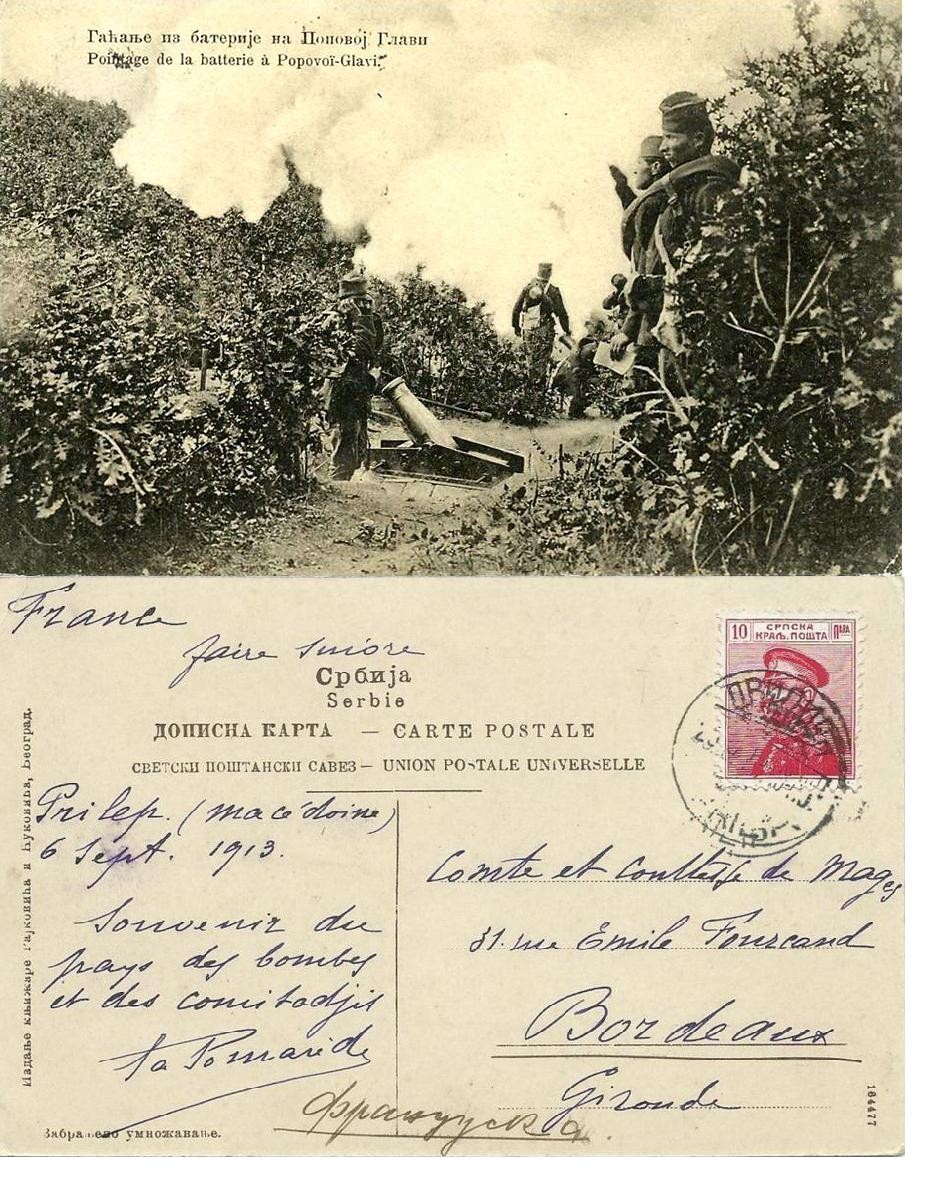 Гађање из батерије на Поповој Глави
Pointage de la batterie à Popovoï-Glavi.
France
faire suivre
Србија
Serbie
ДОПИСНА КАРТА — CARTE POSTALE
СВЕТСКИ ПОШТАНСКИ САВЕЗ — UNION POSTALE UNIVERSELLE
10 СРПСКА ПАРА
КРАЉ. ПОШТА
Prilep. (Macédoine)
6 Sept. 1913.
Souvenir du
pays des bombes
et des comitadjis
Comte et de Mages
31. rue Emile Fourcand
Bordeaux
Gironde
Француска.
Издање књижаре Рајковића и Ћуковића, Београд.
Забрањено умножавање.
184477